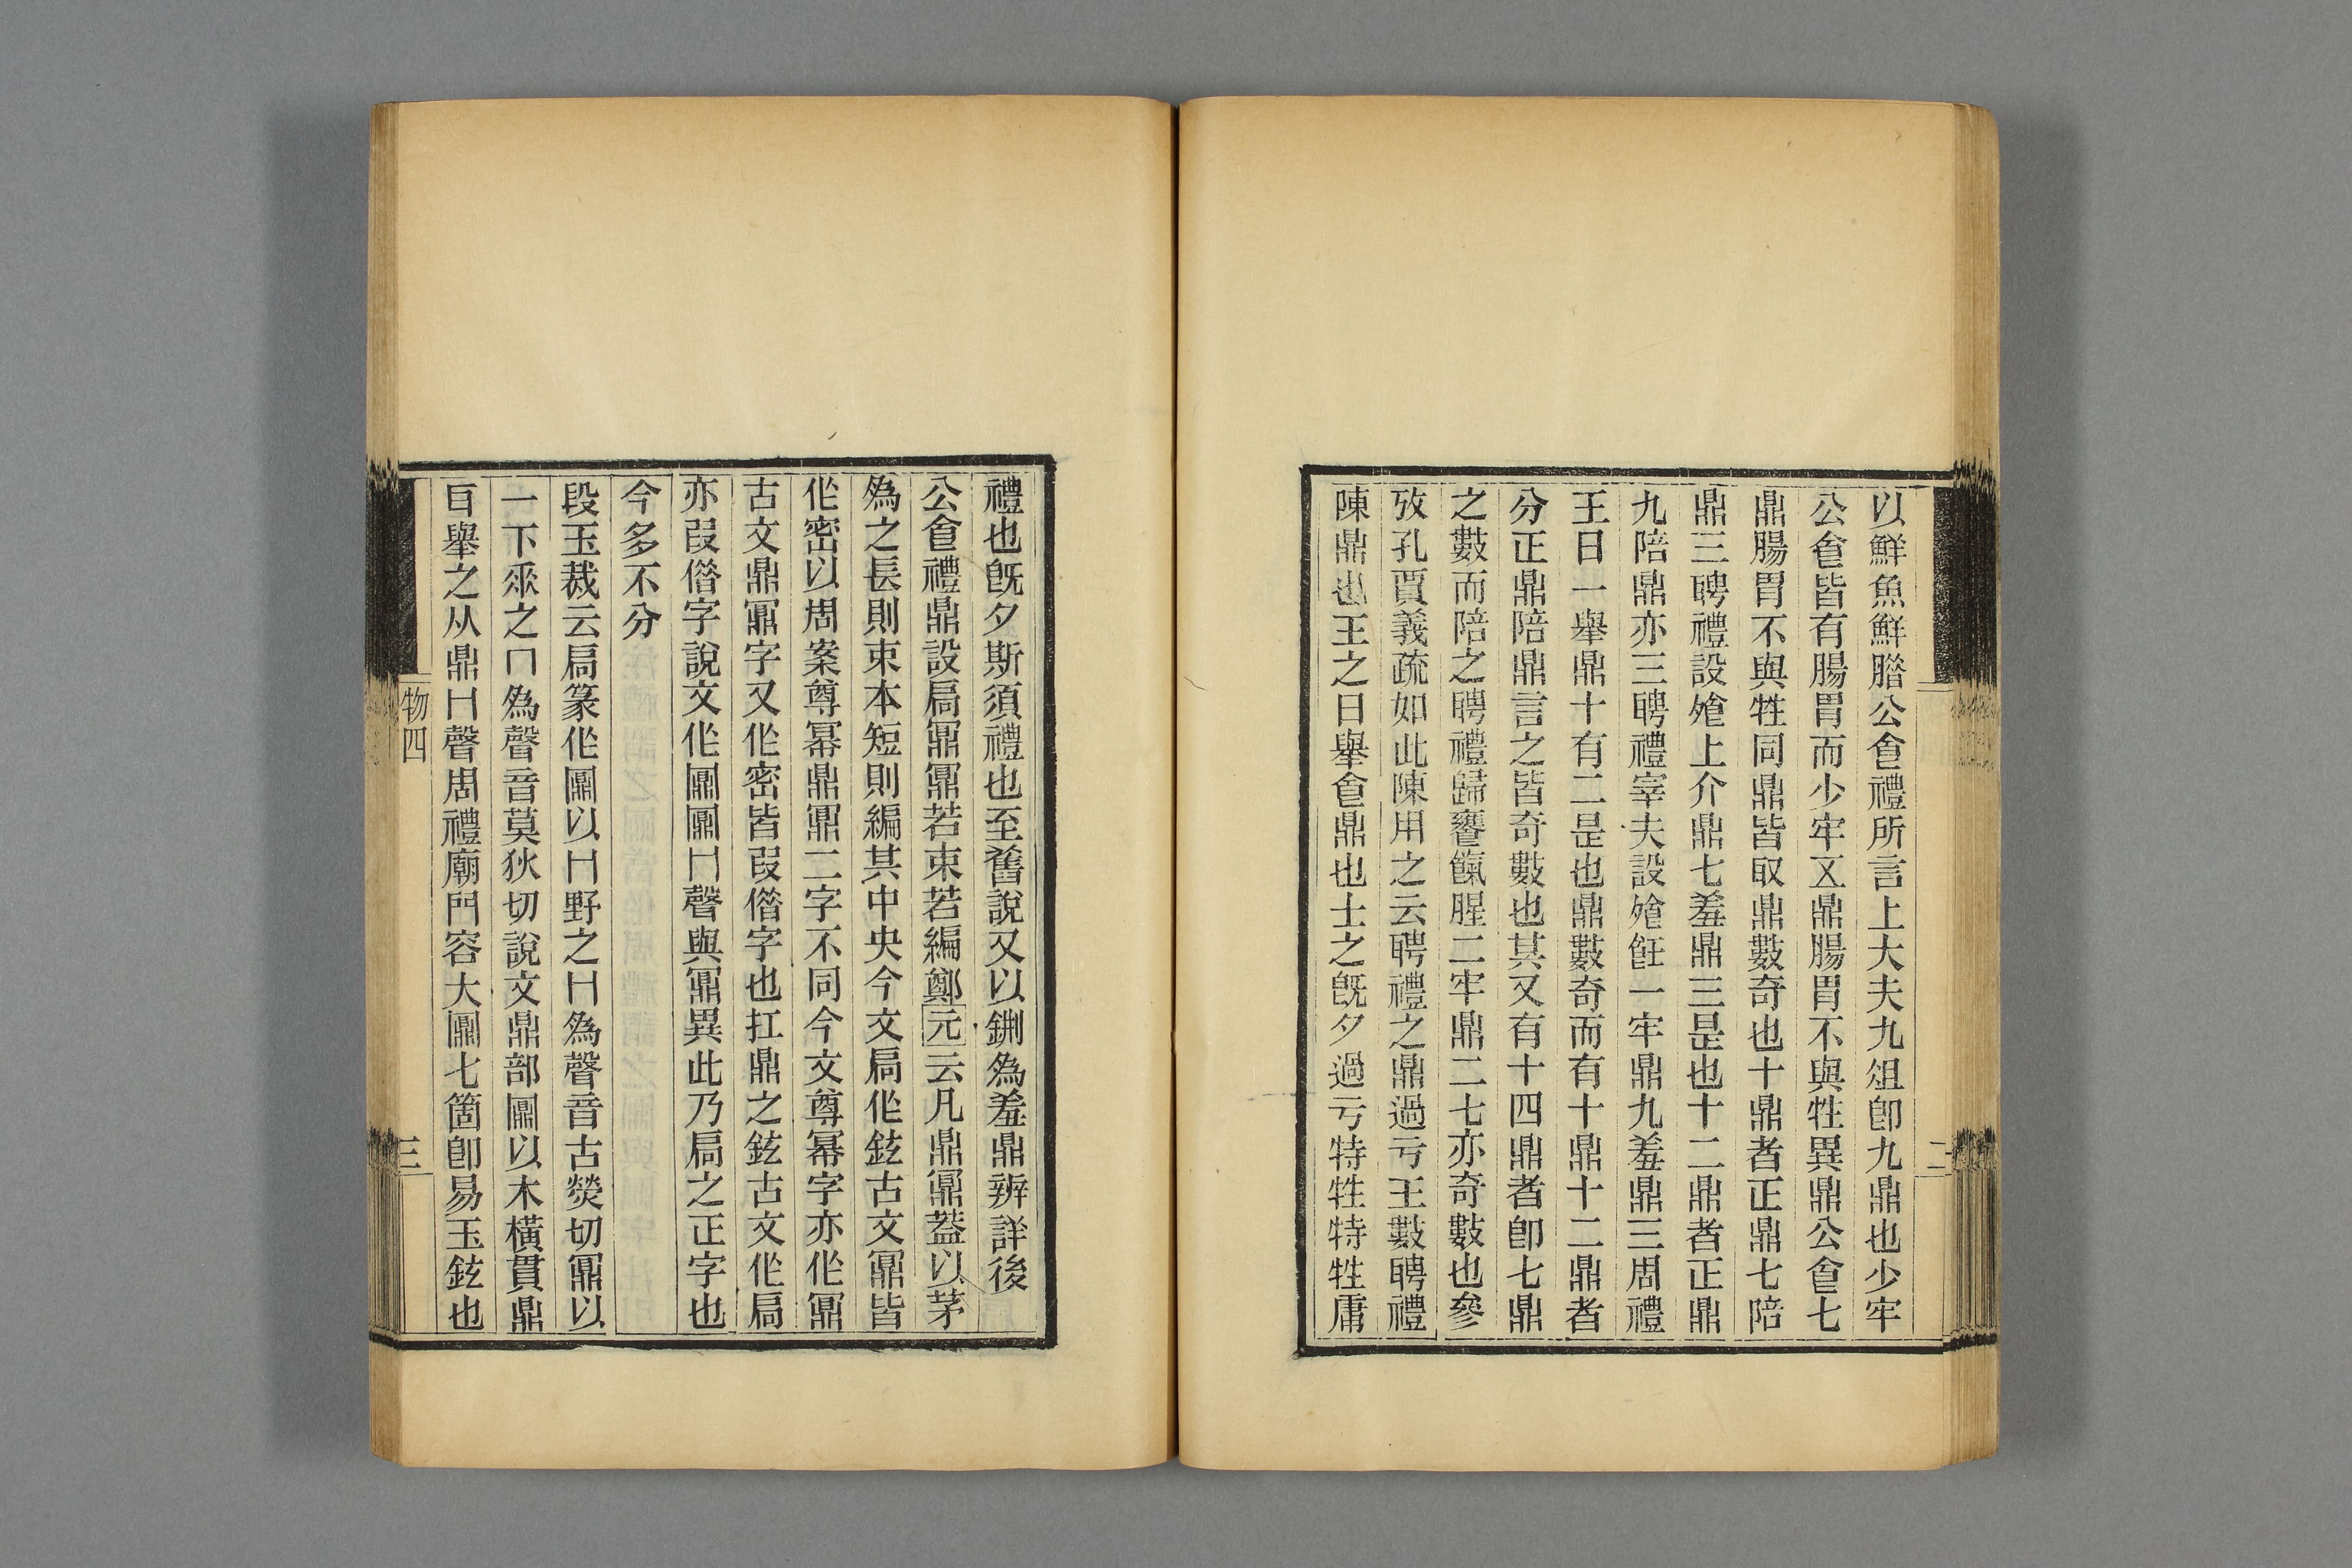 以鮮魚鮮腊公㑹禮所言上大夫九俎卽九鼎也少牢
公㑹皆有腸胃而少牢五鼎腸胃不與牲異鼎公㑹七
鼎腸胃不與牲同鼎皆取鼎數奇也十鼎者正鼎七陪
鼎三聘禮設飱上介鼎七羞鼎三是也十二鼎者正鼎
九陪鼎亦三聘禮宰夫設飱飪一牢鼎九羞鼎三周禮
王日一舉鼎十有二是也鼎數奇而有十鼎十二鼎者
分正鼎陪鼎言之皆奇數也其又有十四鼎者卽七鼎
之數而陪之聘禮歸饔餼腥二牢鼎二七亦奇數也參
攷孔賈義疏如此陳用之云聘禮之鼎過亏王數聘禮
陳鼎也王之日舉㑹鼎也士之旣夕過亏特牲特牲庸
二
禮也旣夕斯須禮也至舊說又以鉶爲羞鼎辨詳後
公㑹禮鼎設扃鼏若束若編鄭元云凡鼎鼏蓋以茅
爲之長則束本短則編其中央今文扃作鉉古文鼏皆
作密以周案尊冪鼎鼏二字不同今文尊冪字亦作鼏
古文鼎鼏字又作密皆叚僭字也扛鼎之鉉古文作扃
亦叚僭字說文作鼏鼏冂聲與鼏異此乃扃之正字也
今多不分
段玉裁云扃篆作鼏以冂野之冂爲聲音古熒切鼏以
一下𠂹之冖爲聲音莫狄切說文鼎部鼏以木橫貫鼎
耳舉之从鼎冂聲周禮廟門容大鼏七箇卽易玉鉉也
物四
三